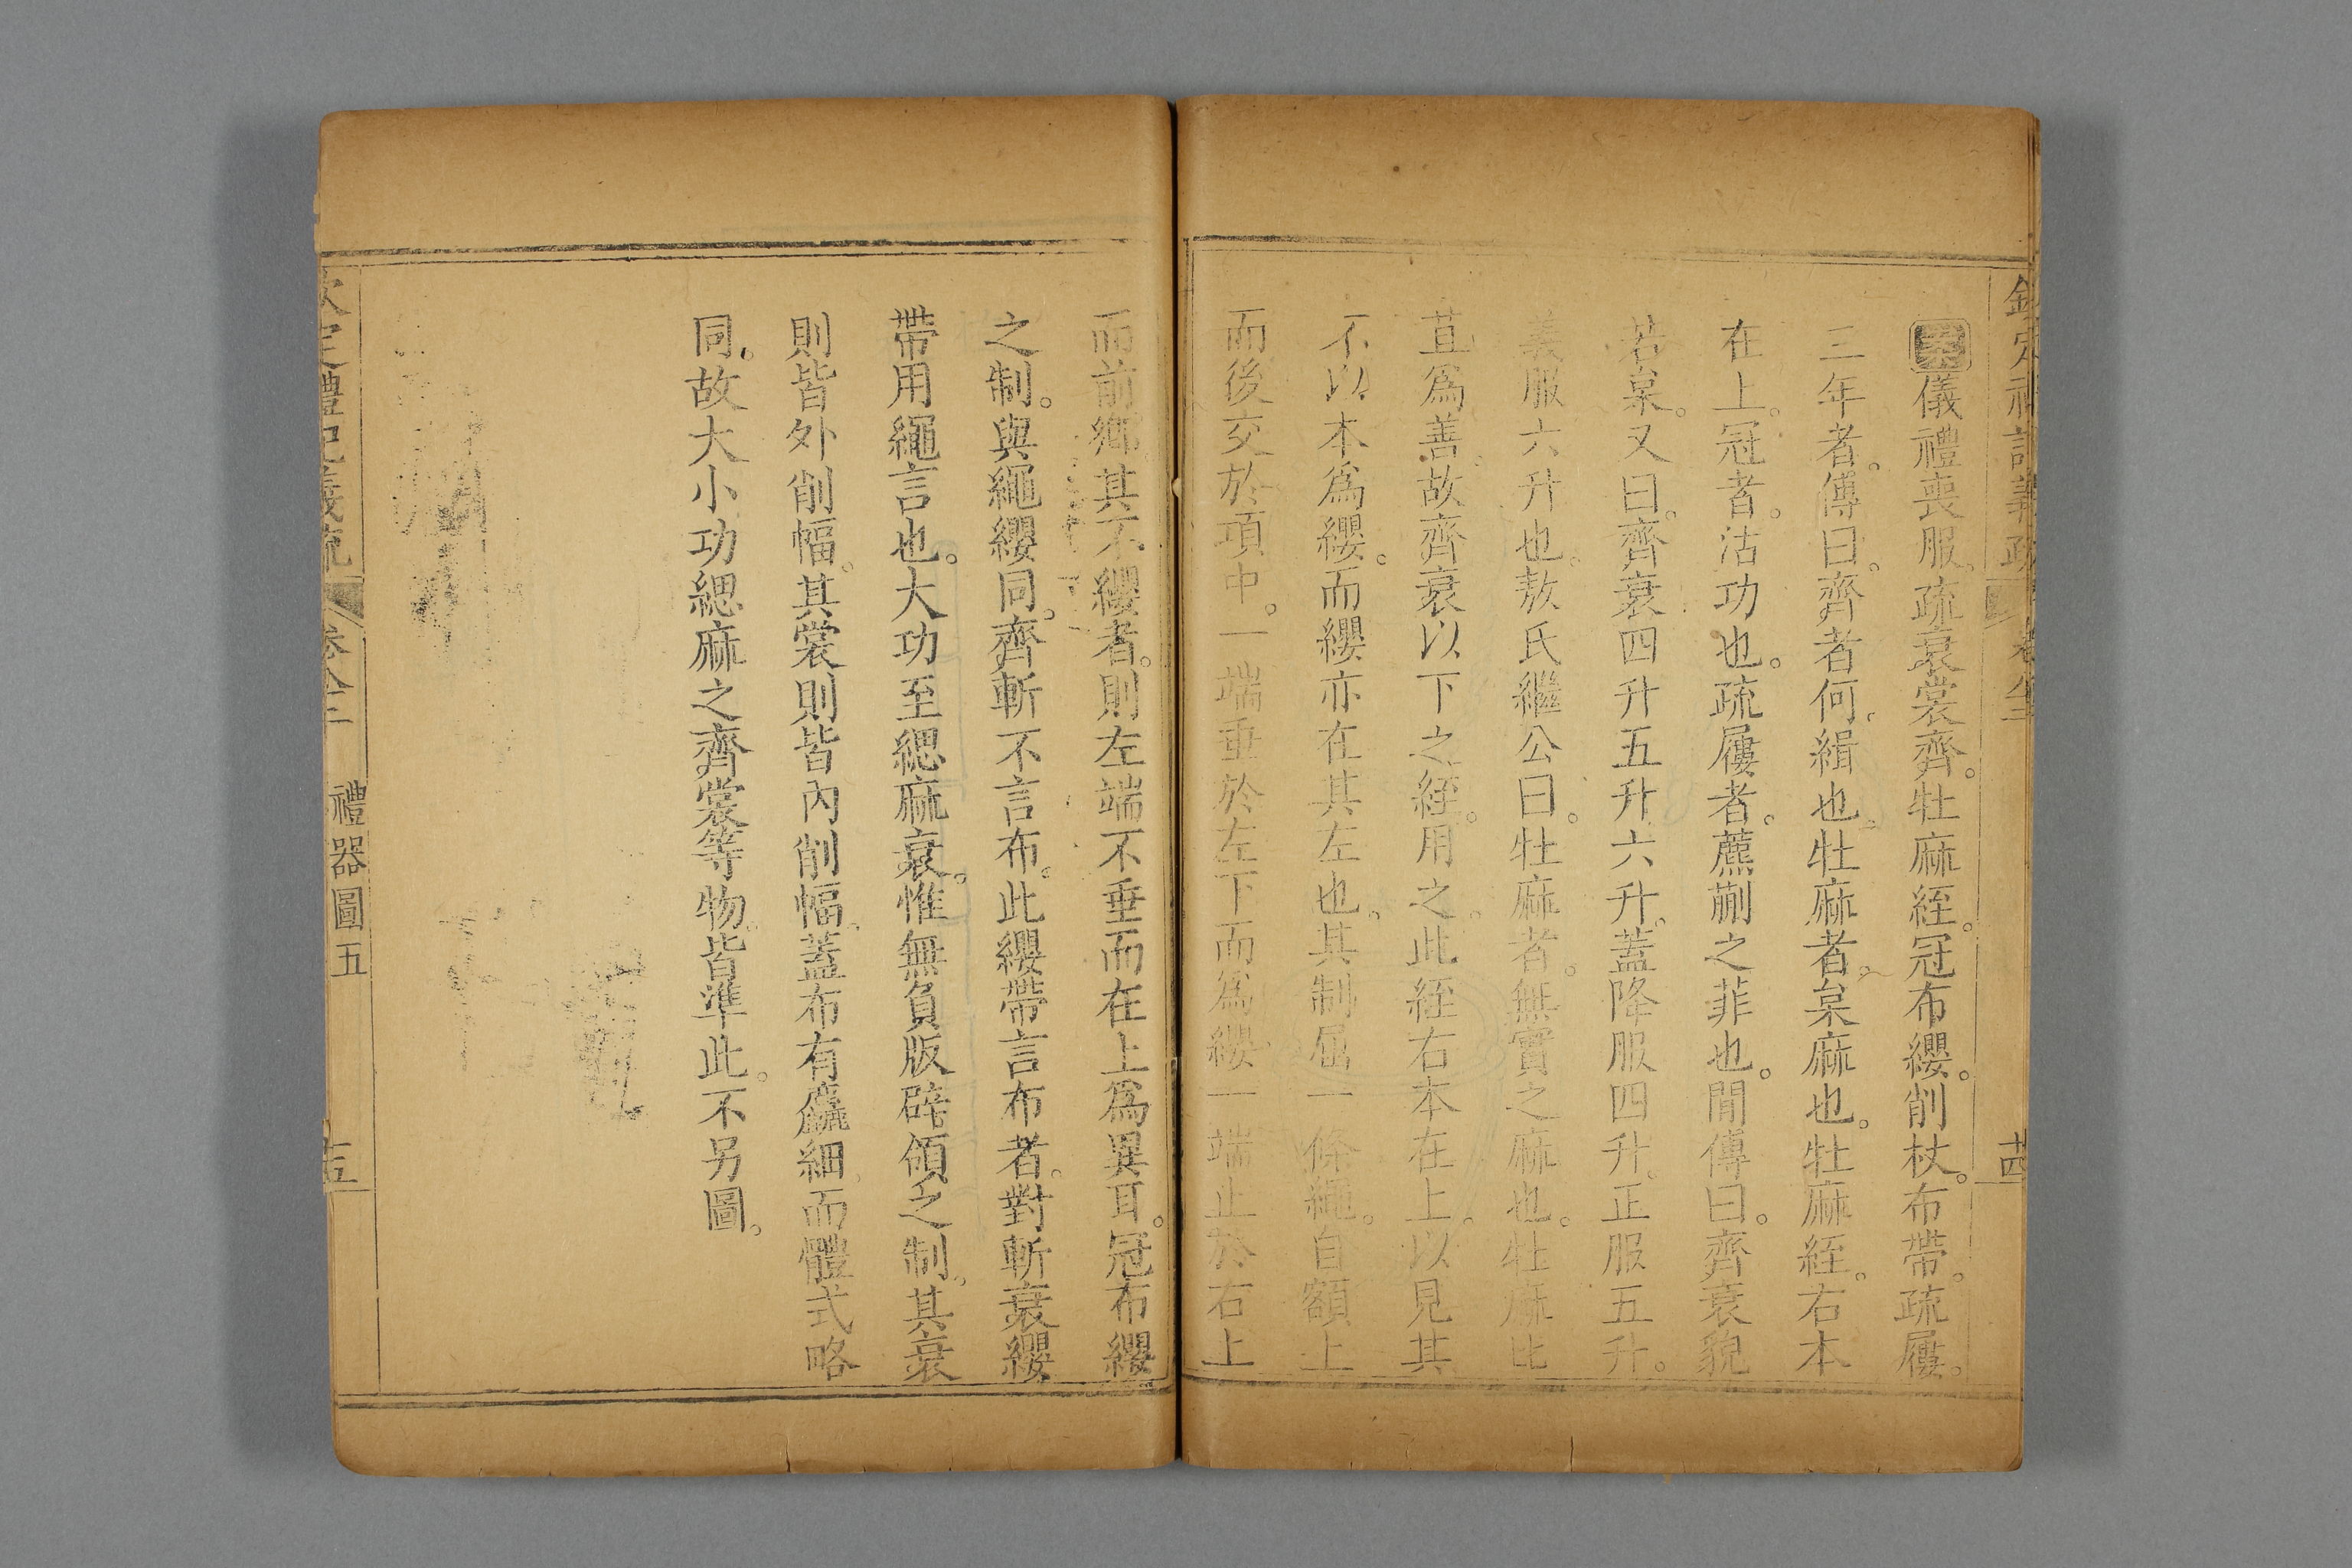 欽定禮記義疏 卷八十二 十四
案儀禮喪服。疏衰裳齊。牡麻絰。冠布纓。削杖。布帶。疏屨。
三年者。傳曰。齊者何。緝也。牡麻者。枲麻也。牡麻絰。右本
在上。冠者。沽功也。疏屨者。藨蒯之菲也。閒傳曰。齊衰貌
若枲。又曰。齊衰四升五升六升。蓋降服四升。正服五升。
義服六升也。敖氏繼公曰。牡麻者。無實之麻也。牡麻比
苴爲善。故齊衰以下之絰。用之。此絰右本在上。以見其
不以本爲纓。而纓亦在其左也。其制屈一條繩。自額上
而後交於項中。一端垂於左下而爲纓一端止於右上
而前鄉。其不纓者。則左端不垂而在上爲異耳。冠布纓
之制。與繩纓同。齊斬不言布。此纓帶言布者。對斬衰纓
帶用繩言也。大功至緦麻衰。惟無負版辟領之制。其衰
則皆外削幅。其裳則皆內削幅。蓋布有麤細。而體式略
同。故大小功緦麻之齊裳等物。皆準此。不另圖。
欽定禮記義疏 卷八十二 禮器圖五 十五